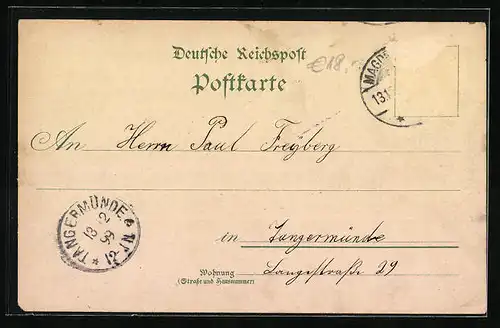 Deutsche Reichspost
€18.
Postkarte
MAGD
13.1
*
An Herrn Paul Freyberg
TANGERMÜNDE
13 2
99
* 12-1N.
in Tangermünde
Wohnung
(Straße und Hausnummer)
Langestraße 29